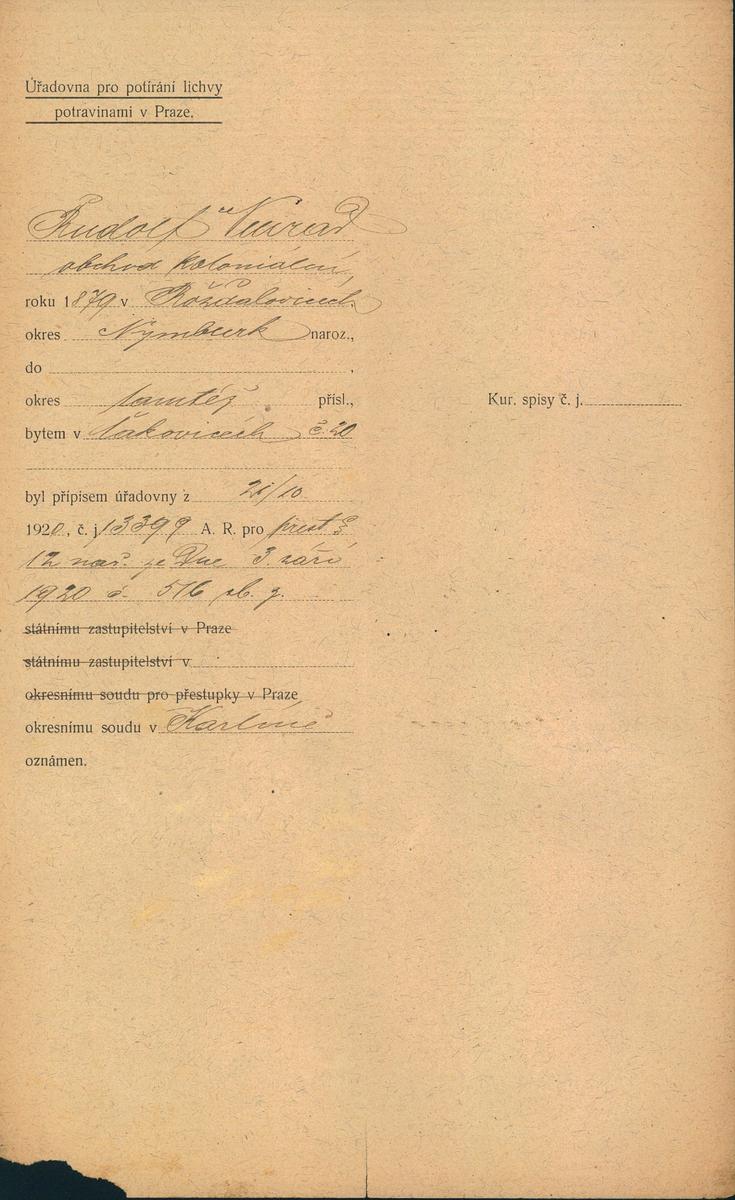 Úřadovna pro potírání lichvy
potravinami v Praze.
Rudolf
obchod koloniální,
roku 1879 v Rožďalovicích,
okres Nymburk naroz.,
do ,
okres tamtéž přísl.,
Kur. spisy č. j.
bytem v Čakovicích č. 20
byl přípisem úřadovny z 21/10
1920, č. j. 13399 A. R. pro přest. §
12 nař. ze dne 3. září
1920 č. 516 sb. z.
státnímu zastupitelství v Praze
státnímu zastupitelství v
okresnímu soudu pro přestupky v Praze
okresnímu soudu v Karlíně
oznámen.